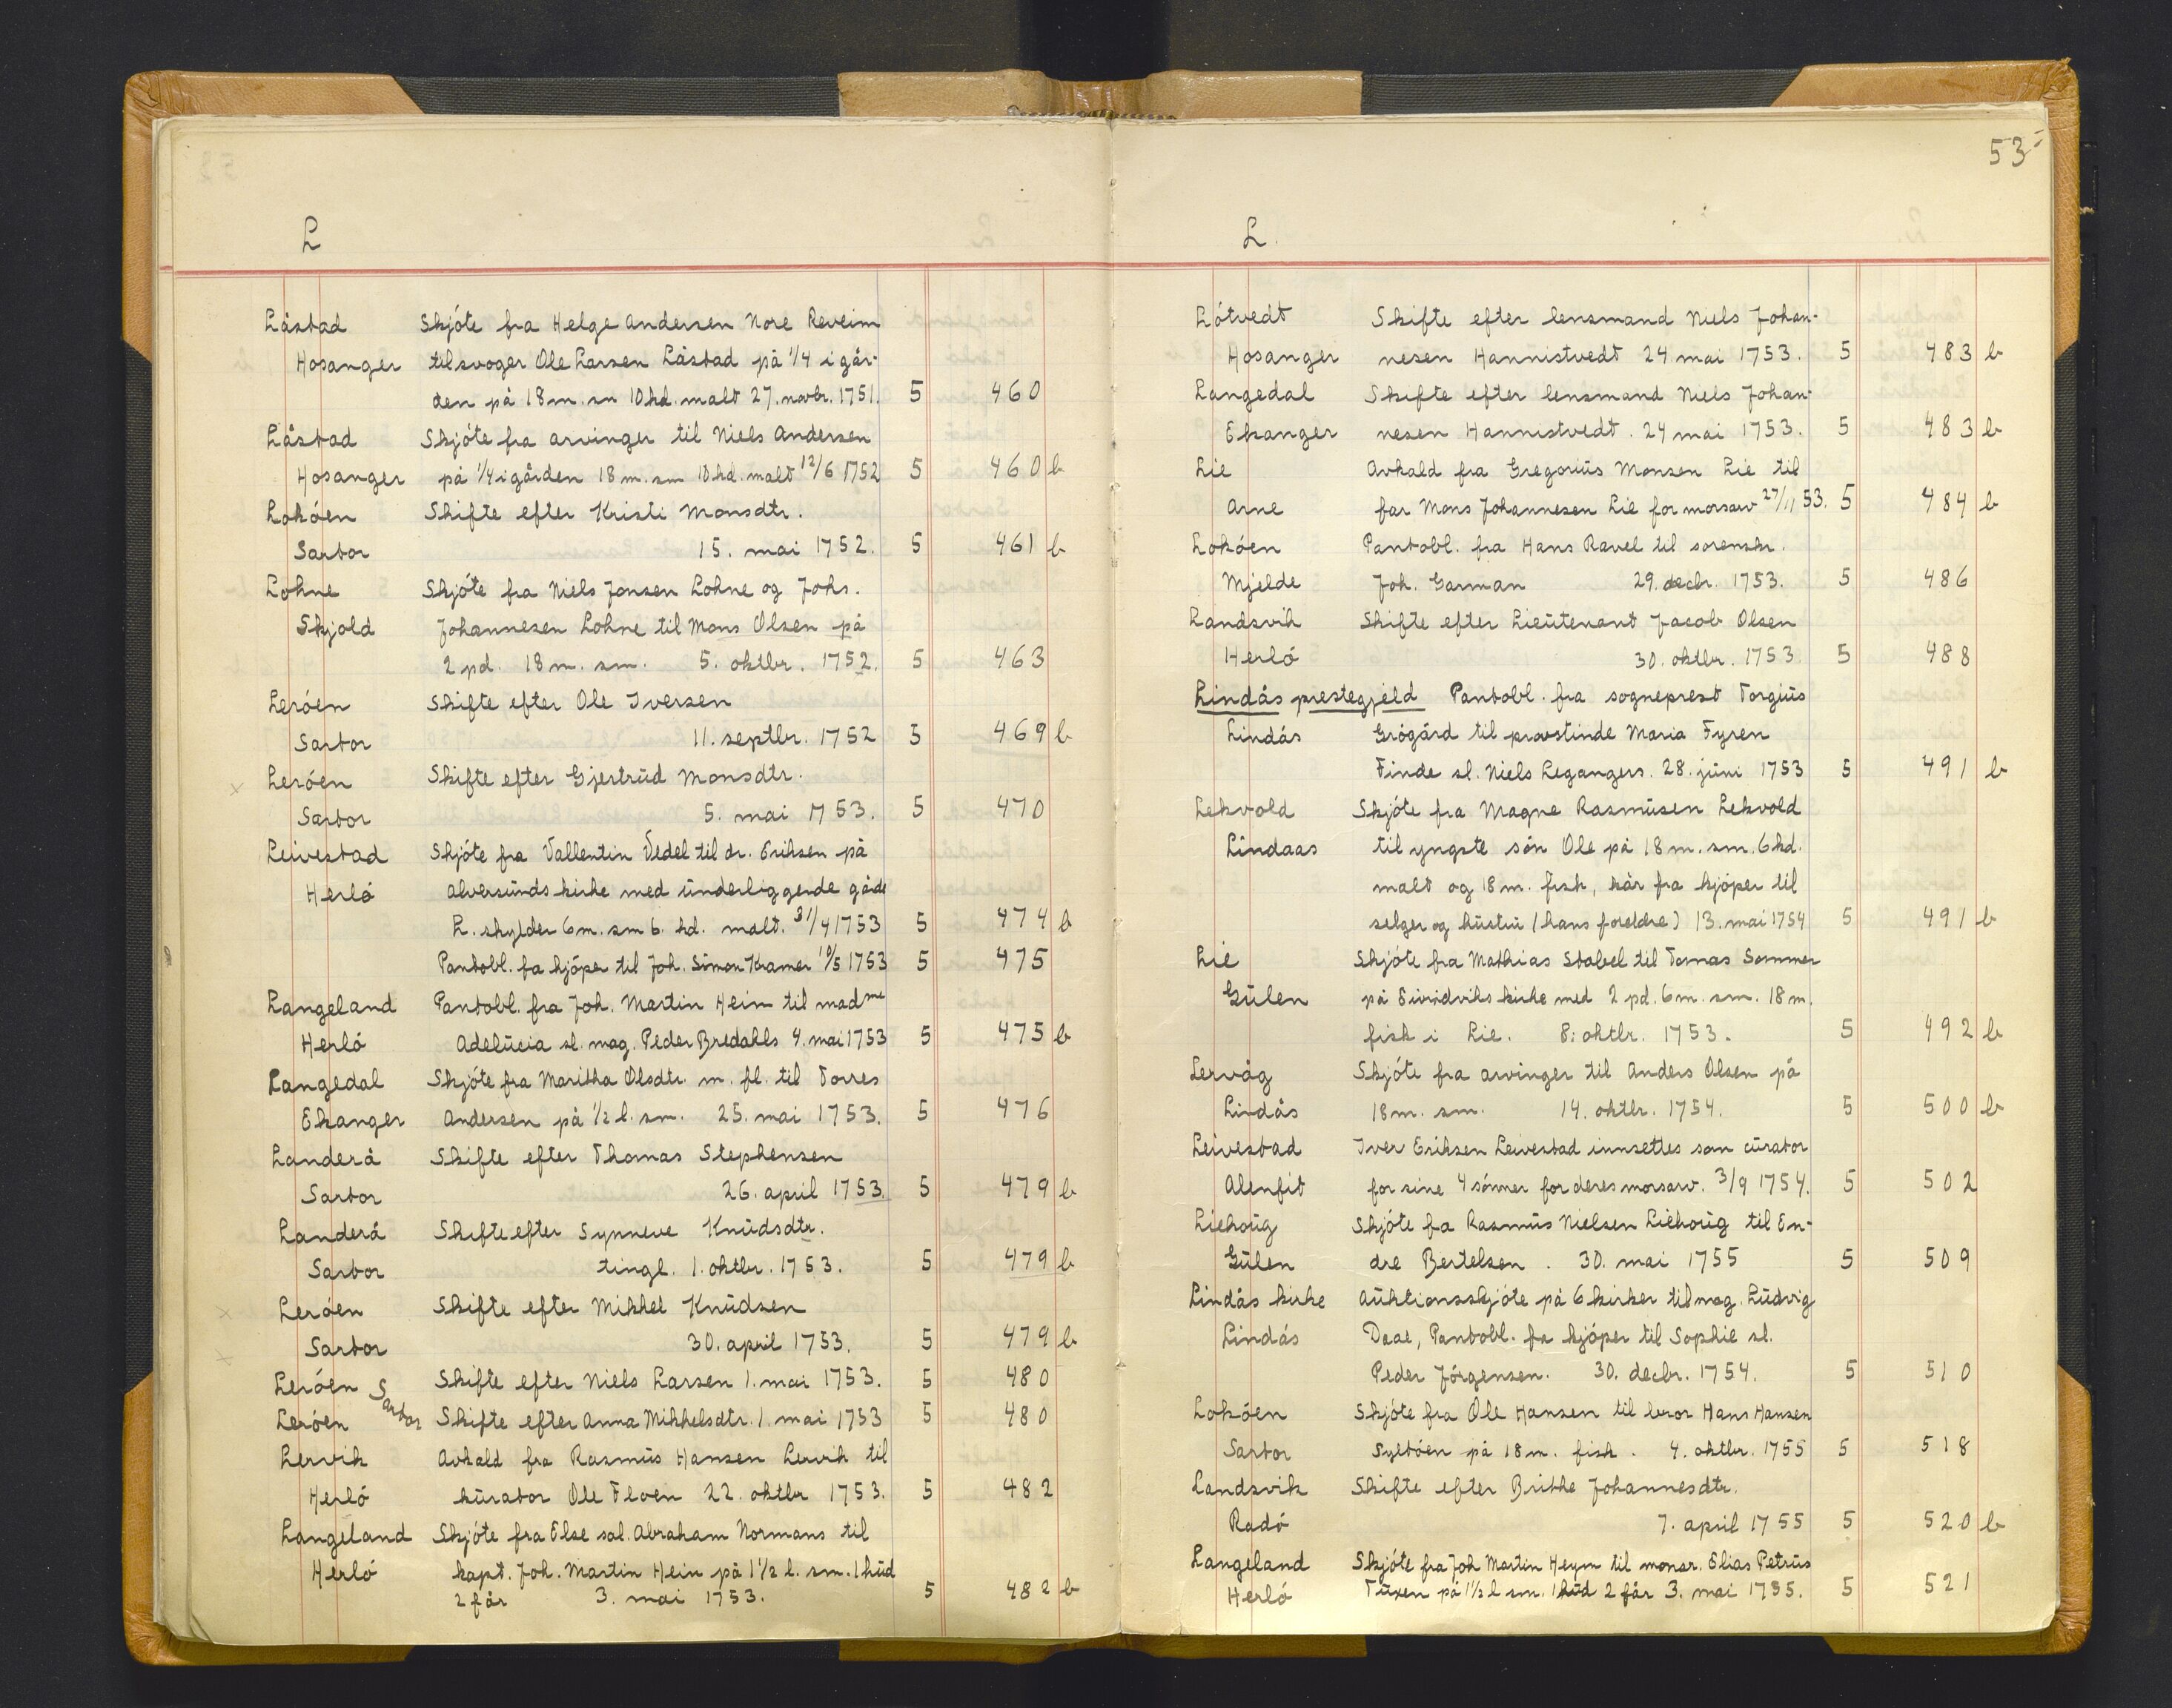 L
Låstad Skjóte fra Helge Andersen Nore Reveim
Hosanger til svoger Ole Larsen Låstad på 1/4 i går-
den på 18 m. sm 10 kd. malt 27. novbr. 1751. 5 460
Låstad Skjóte fra arvinger til Niels Andersen
Hosanger på 1/4 i gården 18 m. sm 10 kd. malt 12/6 1752 5 460 b
Lokóen Skifte efter Kristi Monsdtr.
Sartor 15. mai 1752. 5 461 b
Lohne Skjóte fra Niels Jonsen Lohne og Johs.
Skjold Johannesen Lohne til Mons Olsen på
2 pd. 18 m. sm. 5. oktbr. 1752. 5 463
Leróen Skifte efter Ole Iversen
Sartor 11. septbr. 1752 5 469 b
x Leróen Skifte efter Gjertrüd Monsdtr.
Sartor 5. mai 1753. 5 470
Leivestad Skjóte fra Vallentin Vedel til dr. Eriksen på
Herló Alversünds kirke med ünderliggende gåde
L. skylder 6 m. sm 6. kd. malt. 31/4 1753 5 474 b
Pantobl. fa kjóper til Joh. Simon Kramer 10/5 1753 5 475
Langeland Pantobl. fra Joh. Martin Hein til madme
Herló Adelücia sl. mag. Peder Bredahls 4. mai 1753 5 475 b
Langedal Skjóte fra Maritha Olsdtr. m. fl. til Torres
Ekanger Andersen på 1/2 l. sm. 25. mai 1753. 5 476
Landerå Skifte efter Thomas Stephensen
Sartor 26. april 1753. 5 479 b
Landerå Skifte efter Synneve Knüdsdtr.
Sartor tingl. 1. oktbr. 1753. 5 479 b
x Leróen Skifte efter Mikkel Knüdsen
x Sartor 30. april 1753. 5 479 b
Leróen Sartor Skifte efter Niels Larsen 1. mai 1753. 5 480
Leróen Skifte efter Anna Mikkelsdtr. 1. mai 1753 5 480
Lervik Avkald fra Rasmüs Hansen Lervik til
Herló kürator Ole Floen 22. oktbr 1753. 5 482
Langeland Skjóte fra Else sal. Abraham Normans til
Herló kapt. Joh. Martin Hein på 1 1/2 l. sm. 1 hüd
2 får 3. mai 1753. 5 482 b
53
L.
Lótvedt Skifte efter lensmand Niels Johan-
Hosanger nesen Hannistvedt 24. mai 1753. 5 483 b
Langedal Skifte efter lensmand Niels Johan-
Ekanger nesen Hannistvedt. 24 mai 1753. 5 483 b
Lie Avkald fra Gregoriüs Monsen Lie til
Arne far Mons Johannesen Lie for morsarv 27/11 53. 5 484 b
Lokóen Pantobl. fra Hans Ravel til sorenskr.
Mjelde Joh. Garman 29. decbr. 1753. 5 486
Landsvik Skifte efter Lieütenant Jacob Olsen
Herló 30. oktbr. 1753. 5 488
Lindås prestegjeld Pantobl. fra sogneprest Torgiüs
Lindås Grógård til provstinde Maria Fyren
Finde sl. Niels Legangers. 28. jüni 1753 5 491 b
Lekvold Skjóte fra Magne Rasmüsen Lekvold
Lindaas til yngste són Ole på 18 m. sm. 6 kd.
malt og 18 m. fisk, kår fra kjóper til
selger og hüstrü (hans foreldre) 13. mai 1754 5 491 b
Lie Skjóte fra Mathias Stabel til Tomas Sommer
Gülen på Eivindviks kirke med 2 pd. 6 m. sm. 18 m.
fisk i Lie. 8. oktbr. 1753. 5 492 b
Lervåg Skjóte fra arvinger til Anders Olsen på
Lindås 18 m. sm. 14. oktbr. 1754. 5 500 b
Leivestad Iver Eriksen Leivestad innsettes som cürator
Alenfit for sine 4 sónner for deres morsarv. 3/9 1754. 5 502
Liehoüg Skjóte fa Rasmüs Nielsen Liehoüg til En-
Gülen dre Bertelsen. 30. mai 1755 5 509
Lindås kirke Aüktionsskjóte på 6 kirker til mag. Lüdvig
Lindås Daae, Pantobl. fra kjóper til Sophie sl.
Peder Jórgensen. 30. decbr. 1754. 5 510
Lokóen Skjóte fra Ole Hansen til bror Hans Hansen
Sartor Syltóen på 18 m. fisk. 4. oktbr. 1755 5 518
Landsvik Skifte efter Brithe Johannesdtr.
Radó 7. april 1755 5 520 b
Langeland Skjóte fra Joh Martin Heym til monsr. Elias Petrüs
Herló Tüxen på 1 1/2 l sm. 1 hüd 2 får 3. mai 1755. 5 521